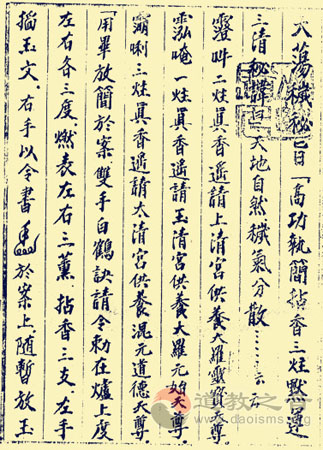 大蕩穢秘曰「高功執簡拈香三炷默運
三清秘諱曰天地自然穢氣分散……云云
二炷真香遙請上清宮供養大羅靈寶天尊.
唵 一炷真香遙請玉清宮供養大羅元始天尊.
唎 三炷真香遙請太清宮供養混元道德天尊.
「用畢放簡於案雙手白鶴訣請令勅在爐上度
左右各三度.燃表左右三薰.拈香三支.左手
搯玉文.右手以令書 於案上.隨暫放玉
道教之音
www.daoisms.org